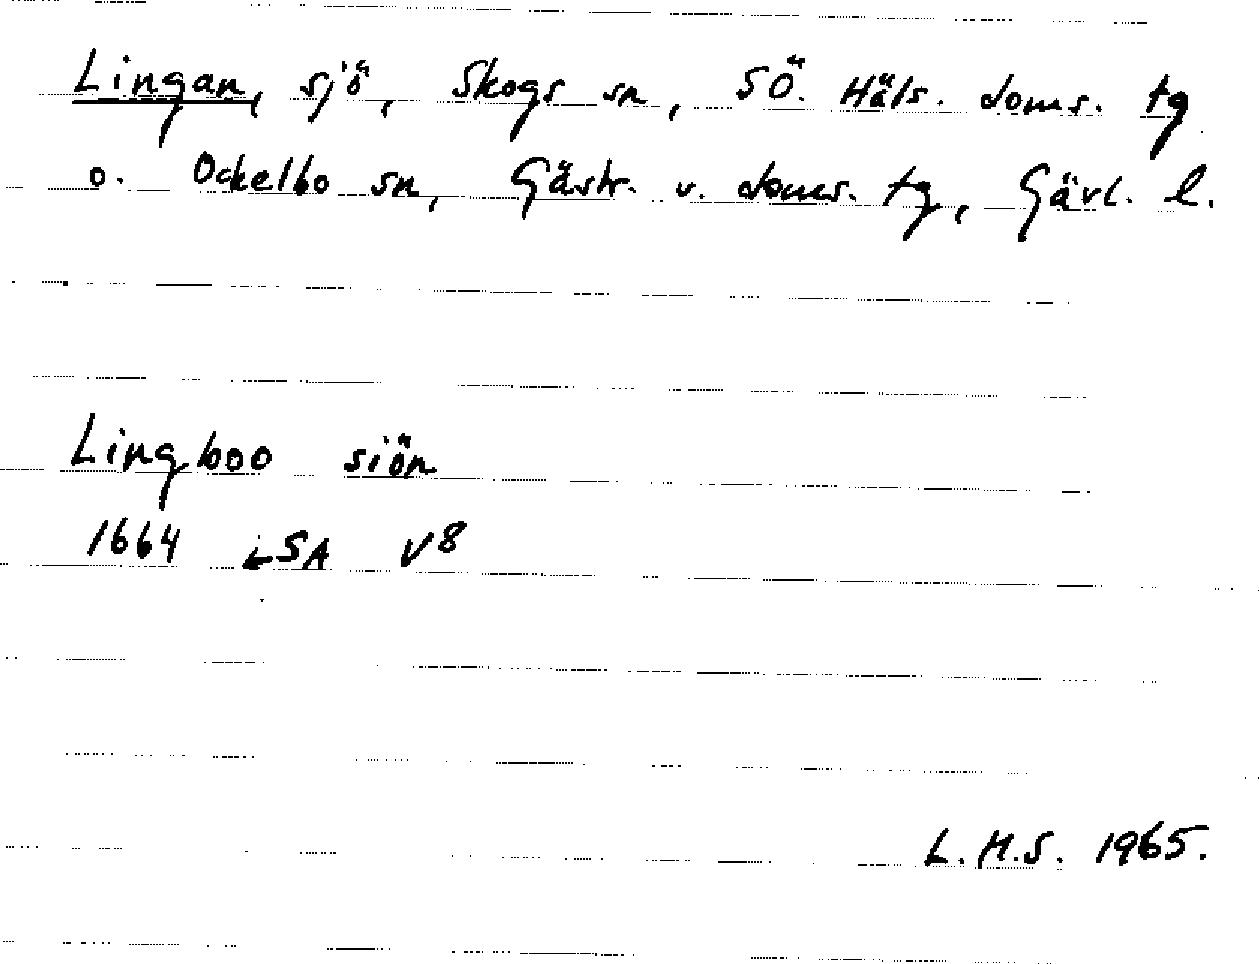 Lingan, sjö, Skogs sn, SÖ. Häls. doms. tg
o. Ockelbo sn, Gästr. v. doms. tg, Gävl. l.
Lingboo siön
1664 LSA V8
L.H.S. 1965.